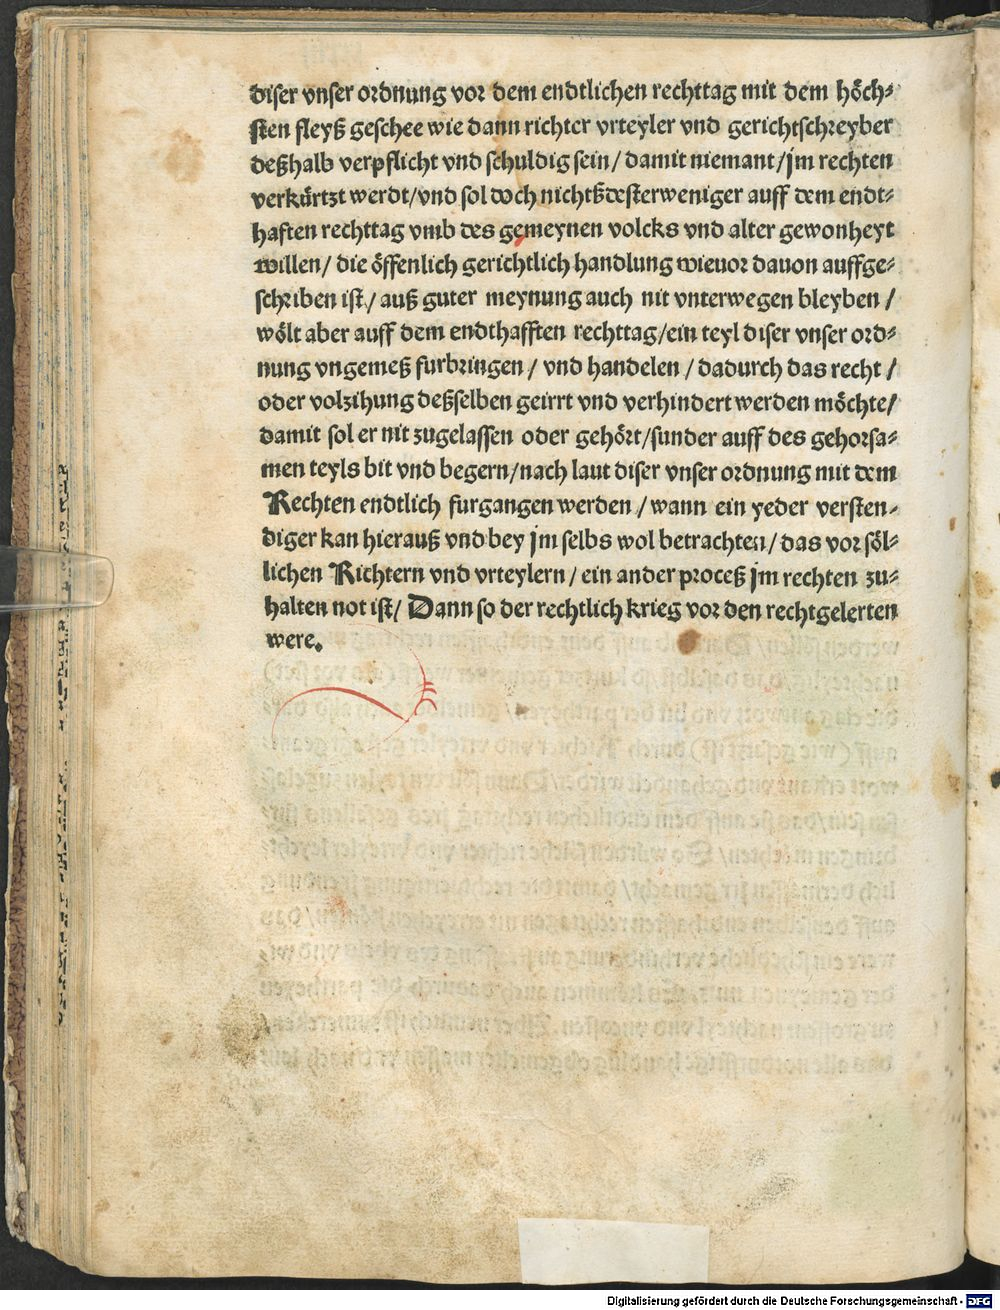 diser vnser ordnung vor dem endtlichen rechttag mit dem höch⸗
sten fleyß geschee wie dann richter vrteyler vnd gerichtschreyber
deßhalb verpflicht vnd schuldig sein/ damit niemant/jm rechten
verkürtzt werdt/vnd sol doch nichtßdesterweniger auff dem endt⸗
haften rechttag vmb des gemeynen volcks vnd alter gewonheyt
willen/ die öffenlich gerichtlich handlung wieuor dauon auffge⸗
schriben ist/ auß guter meynung auch nit vnterwegen bleyben /
wölt aber auff dem endthafften rechttag/ein teyl diser vnser ord⸗
nung vngemeß furbringen / vnd handelen / dadurch das recht /
oder volzihung deßselben geirrt vnd verhindert werden möchte/
damit sol er nit zugelassen oder gehört/sunder auff des gehorsa⸗
men teyls bit vnd begern/nach laut diser vnser ordnung mit dem
Rechten endtlich furgangen werden / wann ein yeder versten⸗
diger kan hierauß vnd bey jm selbs wol betrachten/ das vor söl⸗
lichen Richtern vnd vrteylern / ein ander proceß jm rechten zu⸗
halten not ist/ Dann so der rechtlich krieg vor den rechtgelerten
were.
Digitalisierung gefördert durch die Deutsche Forschungsgemeinschaft - DFG